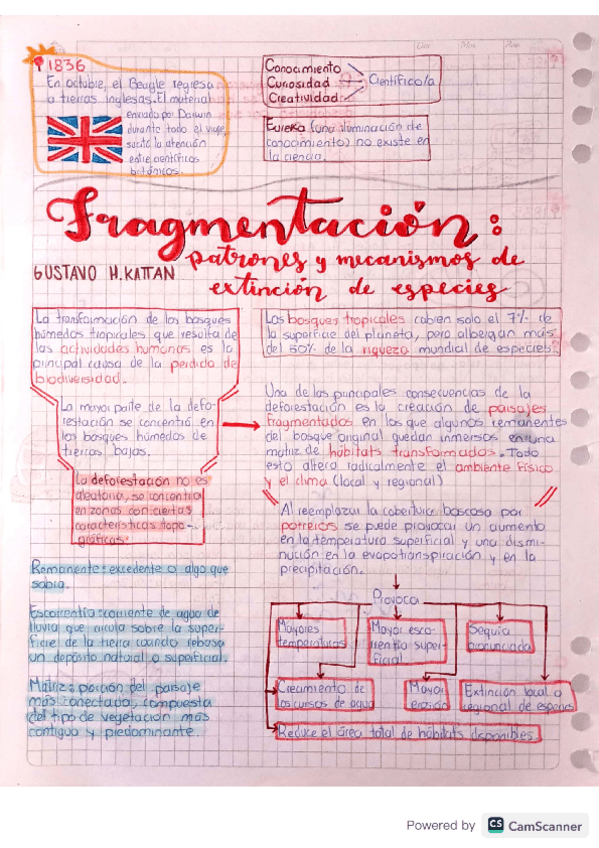 1836
En octubre, el Beagle regresa
a tierras inglesas. El material
enviado por Darwin
durante todo el viaje,
suscitó la atención
entre científicos
británicos.
Conocimiento
Curiosidad
Creatividad
Científico/a
Eureka (una iluminación de
conocimiento) no existe en
la ciencia.
Fragmentación:
patrones y mecanismos de
extinción de especies
GUSTAVO H. KATTAN
La transformación de los bosques
húmedos tropicales que resulta de
las actividades humanas es la
principal causa de la perdida de
biodiversidad.
Los bosques tropicales cubren solo el 7% de
la superficie del planeta, pero albergan más
del 50% de la riqueza mundial de especies.
La mayor parte de la defo-
restación se concentró en
los bosques húmedos de
tierras bajas.
La deforestación no es
aleatoria, se concentra
en zonas con ciertas
características topo-
gráficas.
Una de las principales consecuencias de la
deforestación es la creación de paisajes
fragmentados en los que algunos remanentes
del bosque original quedan inmersos en una
matriz de hábitats transformados. Todo
esto altera radicalmente el ambiente físico
y el clima (local y regional)
Al reemplazar la cobertura boscosa por
potreros se puede provocar un aumento
en la temperatura superficial y una dismi-
nución en la evapotranspiración y en la
precipitación.
Remanente: excedente o algo que
sobra.
Escorrentía: corriente de agua de
lluvia que circula sobre la super-
ficie de la tierra cuando rebasa
un depósito natural o superficial.
Matriz: porción del paisaje
más conectada, compuesta
del tipo de vegetación más
contiguo y predominante.
Provoca
Mayores
temperaturas
Mayor esco-
rrentía super-
ficial
Sequía
pronunciada
Crecimiento de
los cursos de agua
Mayor
erosión
Extinción local o
regional de especies
Reduce el área total de hábitats disponibles.
Powered by CS CamScanner